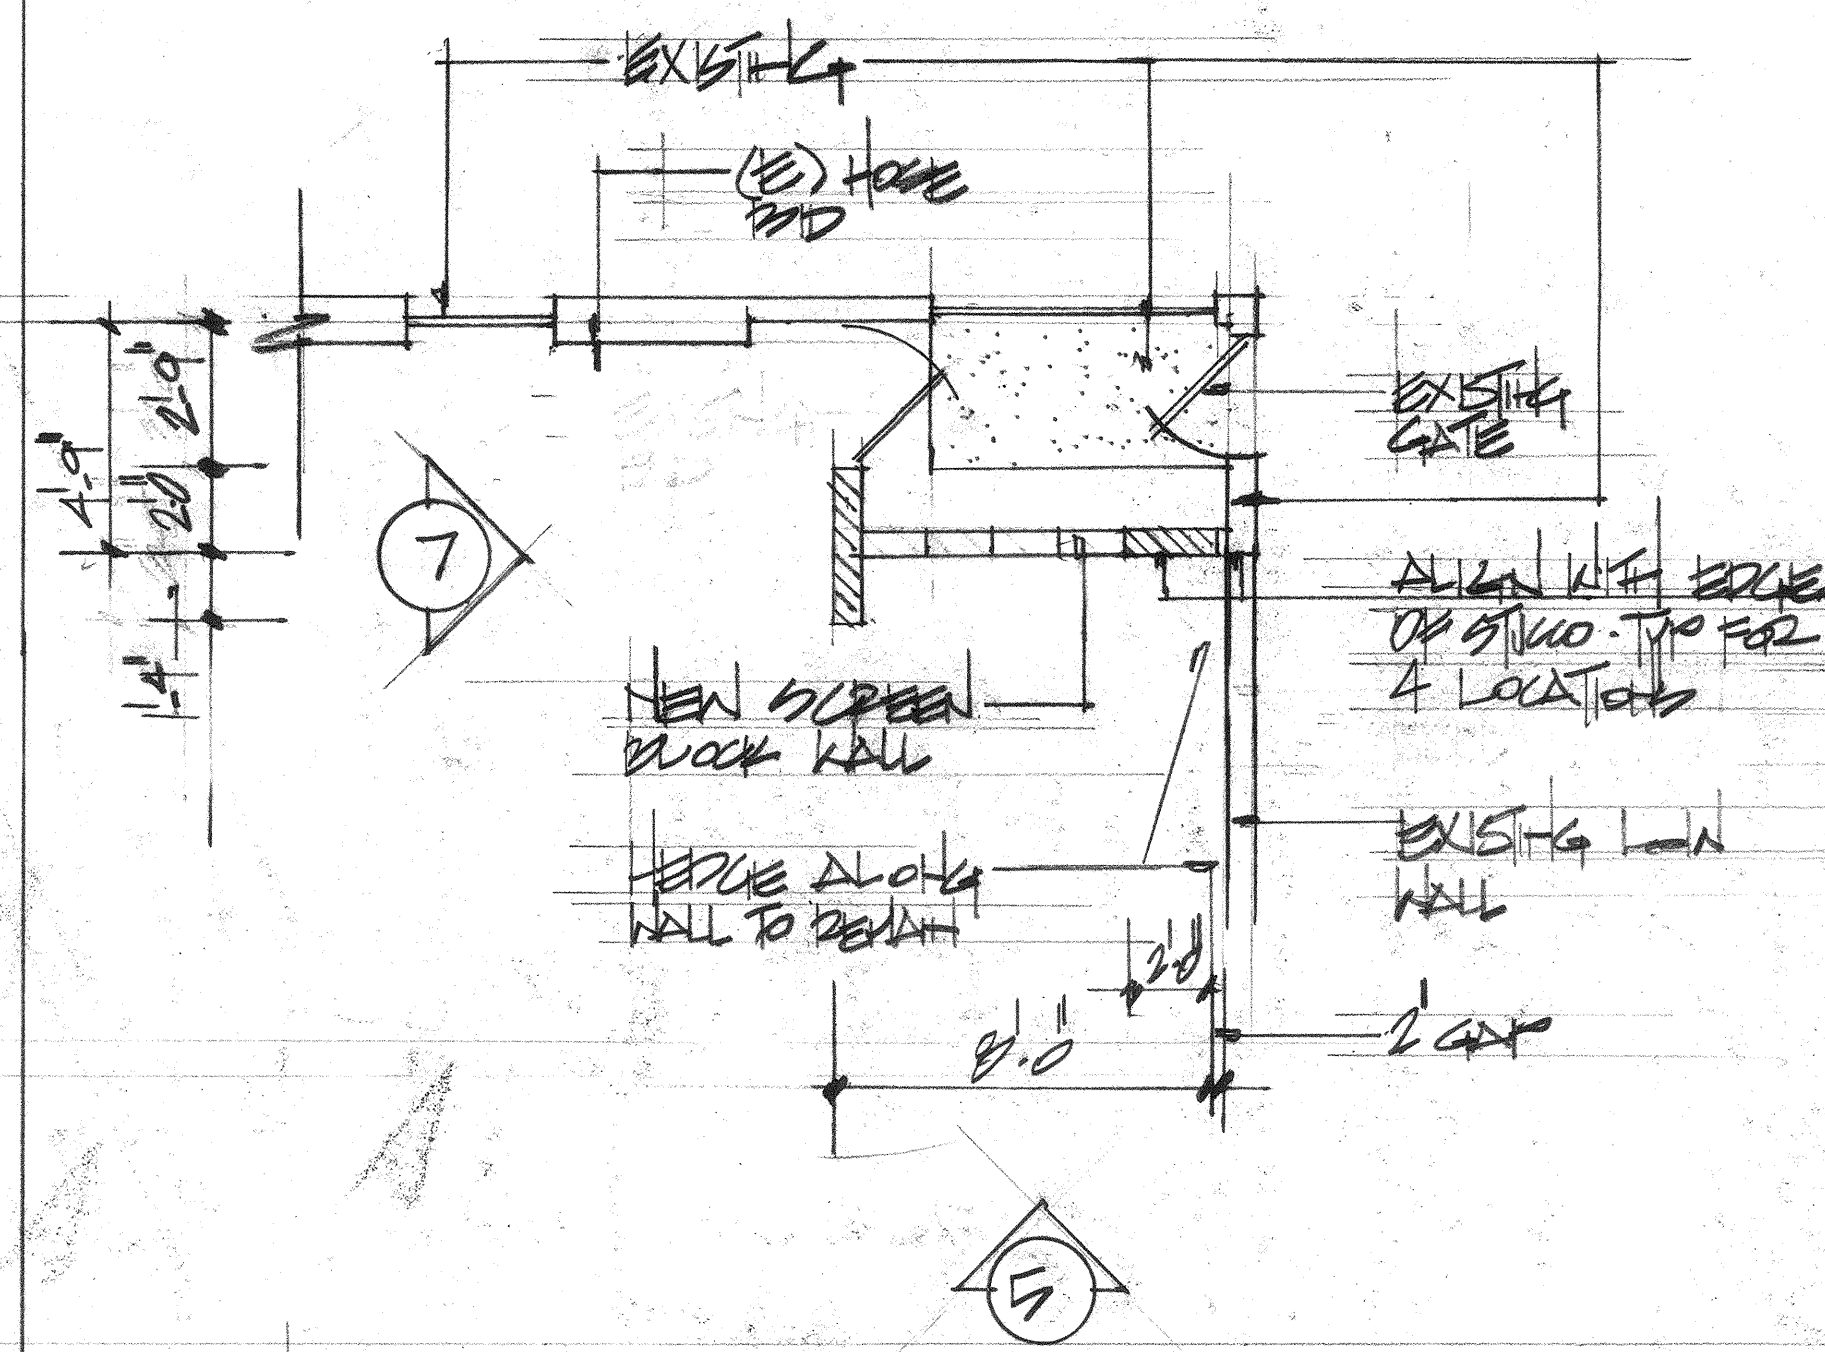 EXIST'G
(E) HOSE
BIB
2'-9"
4'-9"
2'-0"
1'-4"
7
EXIST'G
GATE
ALIGN WITH EDGE
OF STUCCO. TYP FOR
4 LOCATIONS
NEW SCREEN
BLOCK WALL
EXIST'G LOW
WALL
HEDGE ALONG
WALL TO REMAIN
2'-0"
8'-0"
2" GAP
5